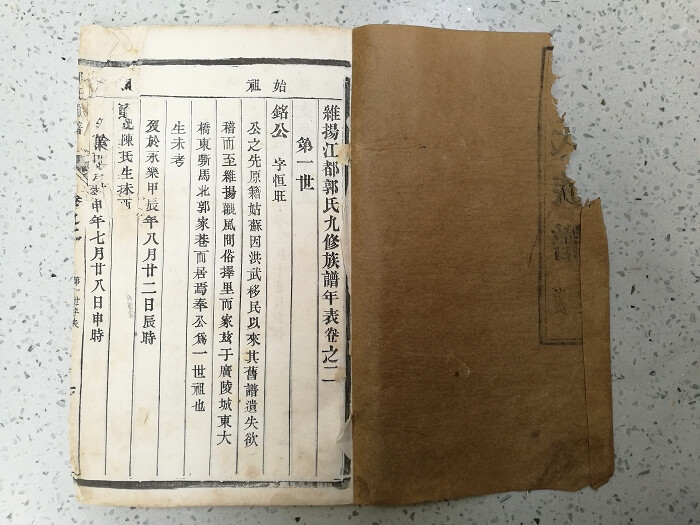 維揚江都郭氏九修族譜年表卷之二
第一世
始祖
銘公 字恒旺
公之先原籍姑蘇因洪武移民以來其舊譜遺失欲
稽而至維揚觀風問俗擇里而家玆于廣陵城東大
橋東斯馬北郭家巷而居焉奉公爲一世祖也
生未考
歿於永樂甲辰年八月廿二日辰時
陳氏生
申年七月廿八日申時
卷之二